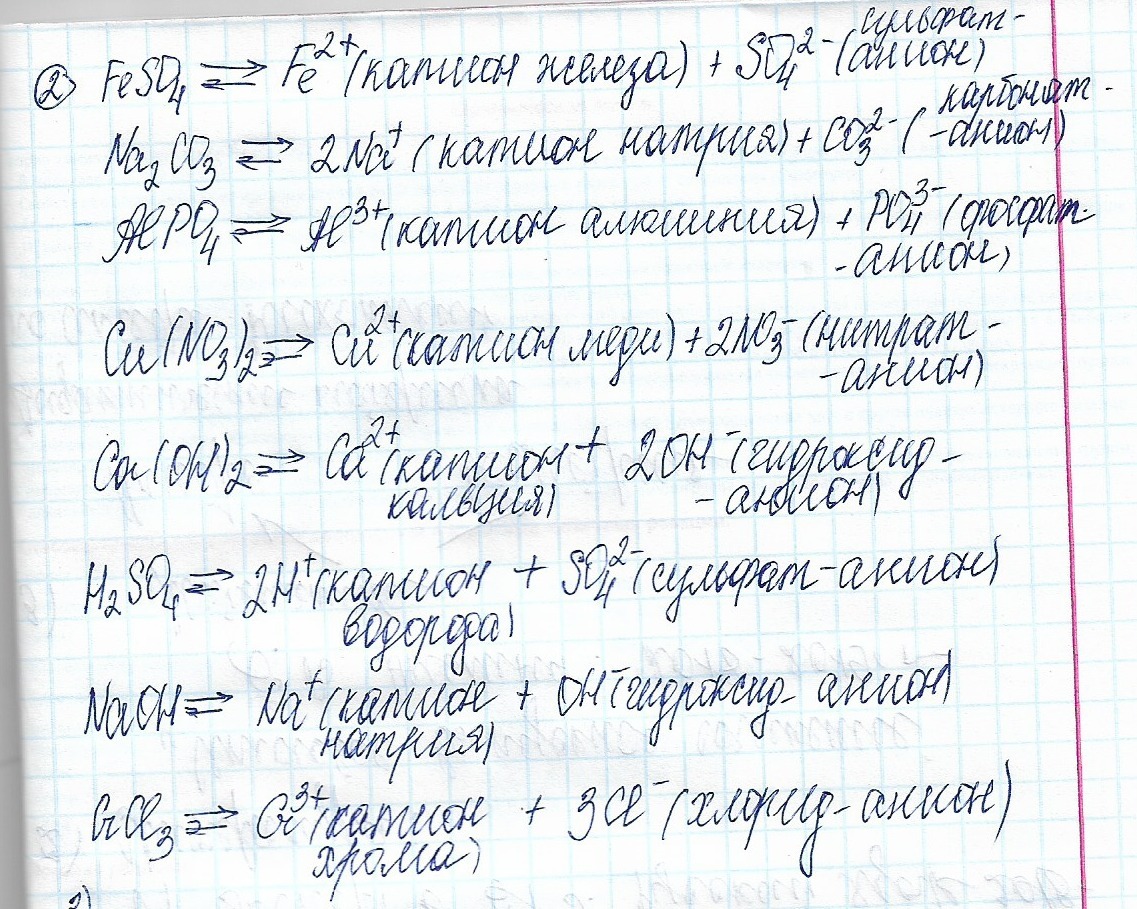 ② FeSO₄ ⇄ Fe²⁺ (катион железа) + SO₄²⁻ (сульфат-
анион)
Na₂CO₃ ⇄ 2Na⁺ (катион натрия) + CO₃²⁻ (карбонат-
-анион)
AlPO₄ ⇄ Al³⁺ (катион алюминия) + PO₄³⁻ (фосфат-
-анион)
Cu(NO₃)₂ ⇄ Cu²⁺ (катион меди) + 2NO₃⁻ (нитрат-
-анион)
Ca(OH)₂ ⇄ Ca²⁺ (катион + 2OH⁻ (гидроксид-
кальция) -анион)
H₂SO₄ ⇄ 2H⁺ (катион + SO₄²⁻ (сульфат-анион)
водорода)
NaOH ⇄ Na⁺ (катион + OH⁻ (гидроксид-анион)
натрия)
CrCl₃ ⇄ Cr³⁺ (катион + 3Cl⁻ (хлорид-анион)
хрома)